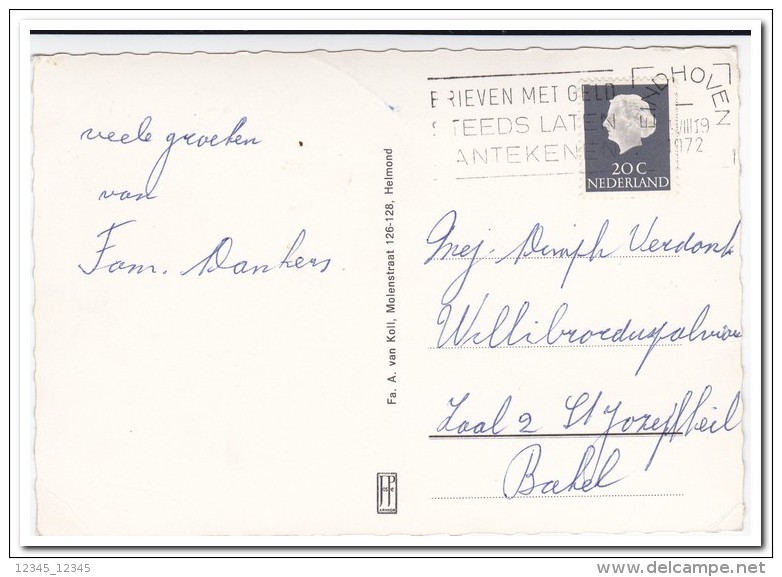 veele groeten
van
Fam. Dankers
Fa. A. van Koll, Molenstraat 126-128, Helmond
BRIEVEN MET GELD
STEEDS LATEN
AANTEKENEN
EINDHOVEN
VIII 19
1972
20 C
NEDERLAND
Mej. Dimph Verdonk
Willibrorduspaviljoen
Zaal 2 St Jozefheil
Bakel
JP
12345_12345
delcampe.net